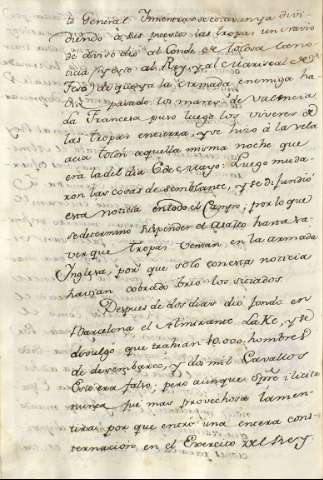 te General. Inmediatamente se avanza divi
diendo a sus puestos las tropas: un navio
de aviso dio al Conde de tolosa la no
ticia (y este al Rey, y al Mariscal de
Tese) de que ya la Armada enemiga ha
via pasado los mares de Valencia
La Francesa puso luego los viveres de
las tropas en tierra, y se hizo á la vela
acia tolón aquella misma noche que
era la del dia 6 de Mayo: Luego muda
ron las cosas de semblante, y se difundió
esta noticia en todo el Campo; por lo que
se determinó suspender el Asalto hasta ha
ver que tropas venian en la armada
Inglesa, por que solo con esta noticia
havian cobrado brio los sitiados
Despues de dos dias dio fondo en
Barcelona el Almirante LaKe, y se
divulgó que trahian 10.000. hombres
de desembarco, y dos mil Cavallos
Esto era falso; pero aunque Spre ilicita
nunca fue mas provechosa la men
tira; por que entró una entera cons
ternacion en el Exercito del Rey.